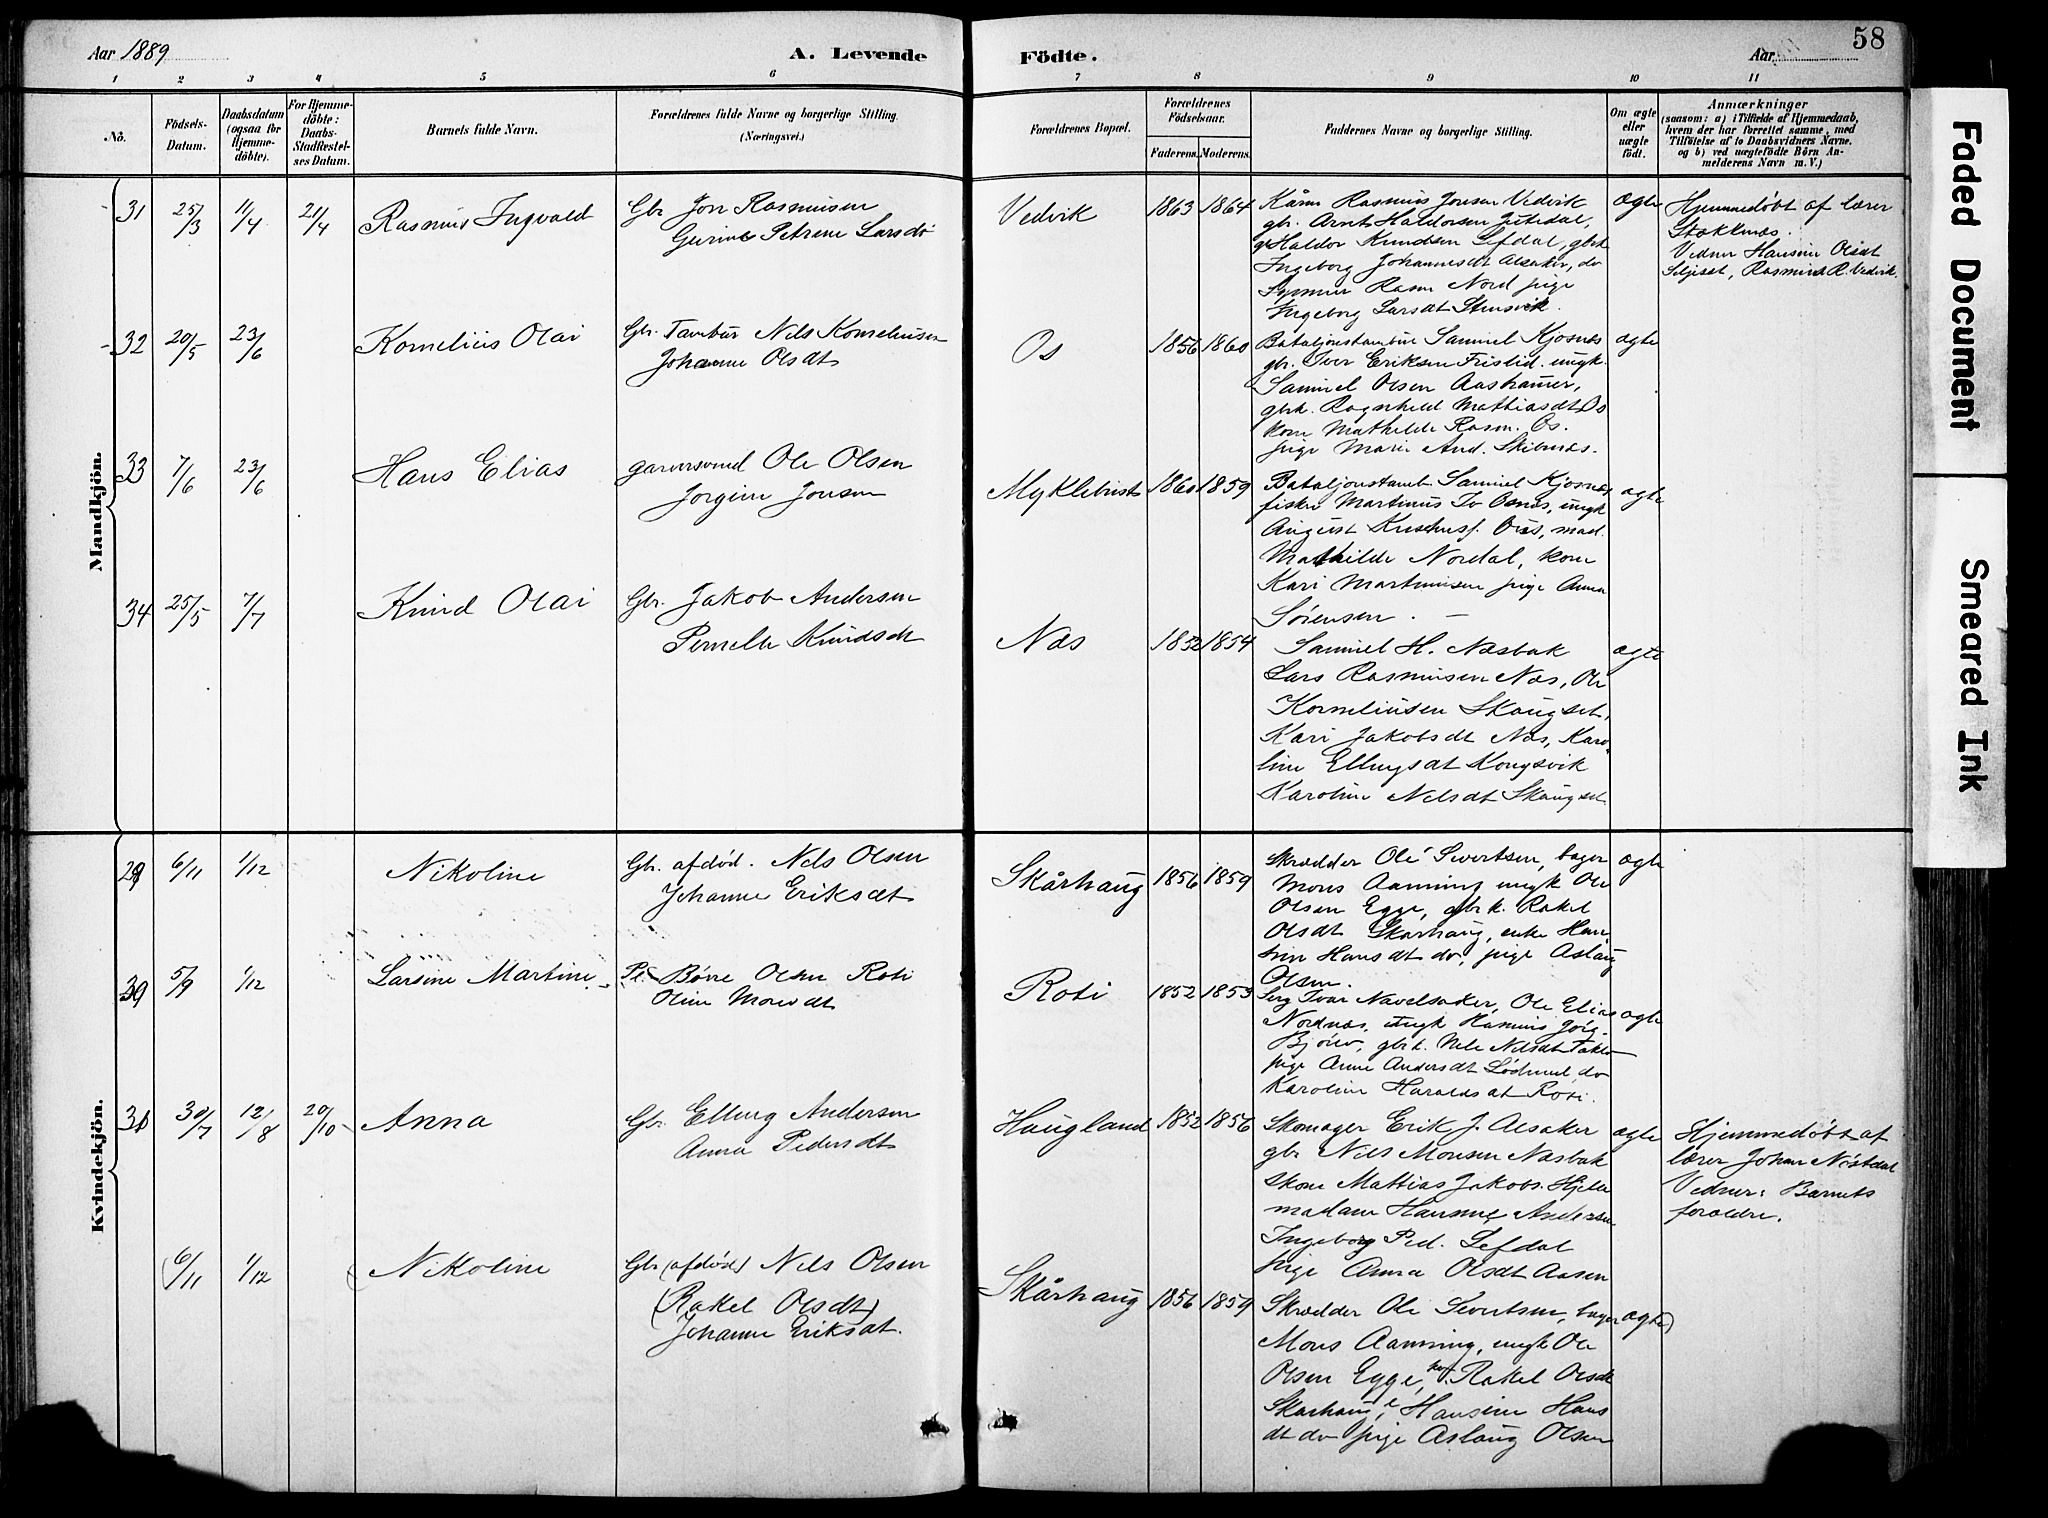 58
Aar 1889
A. Levende
Födte.
Aar
1 2 3 4 5 6 7 8 9 10 11
No.
Födsels-Datum.
Daabsdatum (ogsaa for Hjemmedöbte).
For Hjemmedöbte: Daabs-Stadfæstelses Datum.
Barnets fulde Navn.
Forældrenes fulde Navne og borgerlige Stilling.
(Næringsvei.)
Forældrenes Bopæl.
Forældrenes Födselsaar.
Faderens. Moderens.
Faddernes Navne og borgerlige Stilling.
Om ægte eller uægte födt.
Anmærkninger
(saasom: a) i Tilfælde af Hjemmedaab,
hvem der har forrettet samme, med
Tilföielse af to Daabsvidners Navne,
og b) ved uægtefödte Börn Anmelderens Navn m. V.)
Mandkjön.
31 25/3 11/4 21/4 Rasmus Ingvald
Gbr Jon Rasmusen
Gurine Petrine Larsd.
Vedvik 1863 1864
Kårm Rasmus Jonsen Vedvik
gbr. Arnt Haldorsen
Haldor Knudsen Lefdal, gbrk
Ingeborg Johannesdt Alsaker, do
Rasm Nord pige
Ingeborg Larsdt Stensvik.
ægte
Hjemmedøbt af lærer
Stokknæs.
Vidner Hansine Olsdt
Seljeset, Rasmus R. Vedvik.
32 20/5 23/6 Kornelius Olai
Gbr. Tambur Nils Korneliusen
Johanne Olsdt
Os 1856 1860
Bataljonstambur Samuel Kjosnes
gbr. Iver Eriksen Fristid. ungk.
Samuel Olsen Aashamer,
gbrk. Ragnhild Mathiasdt Os
kone Mathilde Rasm. Os.
pige Marie And. Skibenæs.
ægte
33 7/6 23/6 Hans Elias
garversvend Ole Olsen
Jorgine Jonsen
Myklebust 1860 1859
Bataljonstamb Samuel Kjosnes
fisker Martinus Osnes, ungk
August Os, mad.
Mathilde Nordal, kone
Kari Martinusen pige Anna
Sörensen.
ægte
34 25/5 7/7 Knud Olai
Gbr. Jakob Andersen
Pernelle Knudsdt
Næs 1852 1854
Samuel H. Næsbak
Lars Rasmusen Næs, Ole
Korneliusen Skaugset,
Kari Jakobsdt Næs, Karoline
Ellingsdt Kongsvik
Karoline Nilsdt Skaugset.
ægte
Kvindekjön.
29 6/11 1/12 Nikoline
Gbr. afdød. Nils Olsen
Johanne Eriksdt
Skårhaug 1856 1859
Skrædder Ole Sivertsen, bager
Mons Aanning ungk Ole
Olsen Egge, gbrk. Rakel
Olsdt Skårhaug, enke Hansine
Hansdt do, pige Aslaug
Olsen.
ægte
30 5/9 1/12 Larsine Martine
Pl. Børre Olsen Roti
Oline Monsdt
Roti 1852 1853
Serg Ivar Navelsaker, Ole Elias
Nordnæs, ungk Rasmus Jørg.
Bjölv, gbrk. Nele Nilsdt Taklo
pige Anne Andersdt Lødemel do
Karoline Haraldsdt Roti.
ægte
31 30/7 12/8 20/10 Anna
Gbr. Elling Andersen
Anna Pedersdt
Haugland 1852 1856
Skomager Erik J. Alsaker
gbr Nils Monsen Næsbak
Skom Mattias Jakobs. Hjelle
madam Hansine Andersen
Ingeborg Ped. Lefdal
pige Anna Olsdt Aasen
ægte
Hjemmedøbt af
lærer Johan Nøstdal
Vidner: Barnets
forældre.
(6/11 1/12 (Nikoline
Gbr (afdøde) Nils Olsen
(Rakel Olsdt)
Johanne Eriksdt.
Skårhaug 1856 1859
Skrædder Ole Sivertsen, bager
Mons Aanning, ungk Ole
Olsen Egge, Rakel Olsdt
Skarhaug, Hansine Hansdt
do pige Aslaug Olsen
ægte)
Faded Document
Smeared Ink